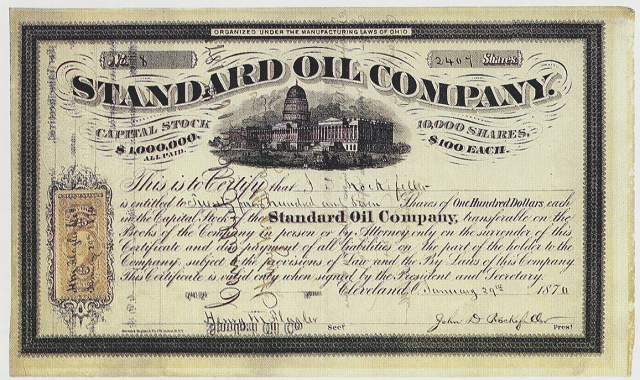 ORGANIZED UNDER THE MANUFACTURING LAWS OF OHIO
No. 8
2407 Shares
STANDARD OIL COMPANY.
CAPITAL STOCK
$1,000,000.
ALL PAID.
10,000 SHARES,
$100 EACH.
This is to Certify that J D Rockefeller
is entitled to hundred and Seven Shares of One Hundred Dollars each
in the Capital Stock of the Standard Oil Company, transferable on the
Books of the Company in person or by Attorney only on the surrender of this
Certificate and the payment of all liabilities on the part of the holder to the
Company, subject to the provisions of Law and the By Laws of this Company
This Certificate is valid only when signed by the President and Secretary.
Cleveland, O. January 29th 1870
Henry M. Flagler Secy.
John D Rockefeller Prest